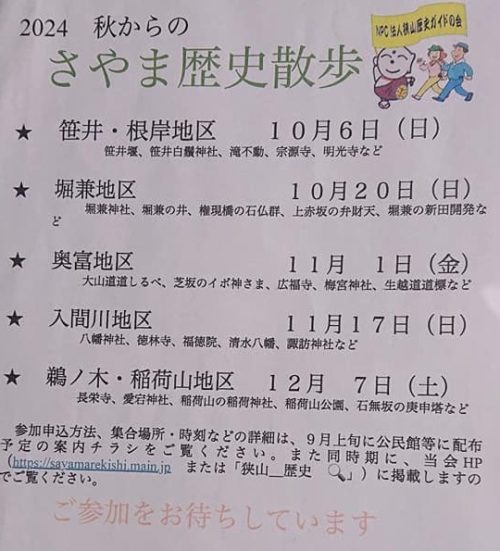 2024 秋からの
さやま歴史散歩
NPO法人狭山歴史ガイドの会
★ 笹井・根岸地区 10月6日(日)
笹井堰、笹井白鬚神社、滝不動、宗源寺、明光寺など
★ 堀兼地区 10月20日(日)
堀兼神社、堀兼の井、権現橋の石仏群、上赤坂の弁財天、堀兼の新田開発な
ど
★ 奥富地区 11月 1日(金)
大山道道しるべ、芝坂のイボ神さま、広福寺、梅宮神社、生越道道標など
★ 入間川地区 11月17日(日)
八幡神社、徳林寺、福徳院、清水八幡、諏訪神社など
★ 鵜ノ木・稲荷山地区 12月 7日(土)
長栄寺、愛宕神社、稲荷山の稲荷神社、稲荷山公園、石無坂の庚申塔など
参加申込方法、集合場所・時刻などの詳細は、9月上旬に公民館等に配布
予定の案内チラシをご覧ください。また同時期に、当会HP
(https://sayamarekishi.main.jp または「狭山__歴史 🔍」)に掲載しますの
でご覧ください。
ご参加をお待ちしています